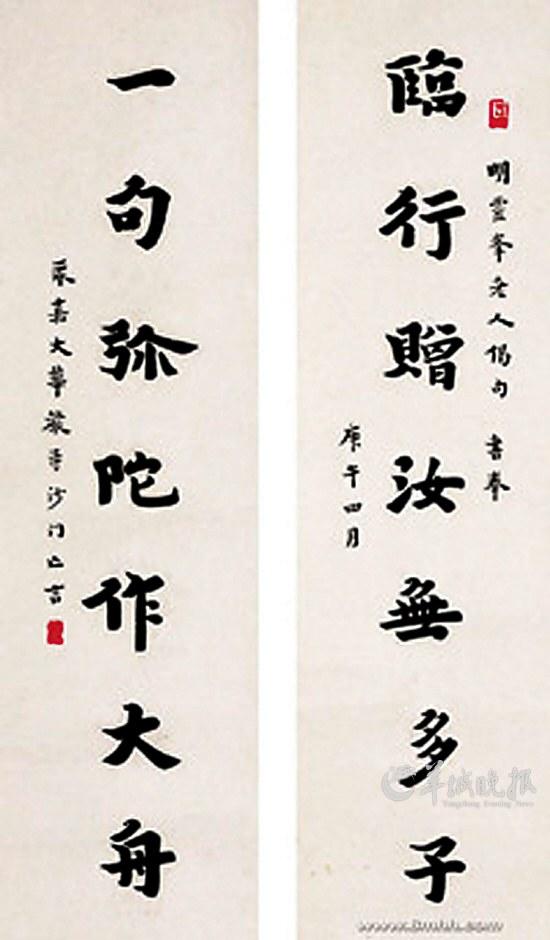 明靈峯老人偈句 書奉
臨行贈汝無多子
庚午四月
一句弥陀作大舟
永嘉大華嚴寺沙门亡言
羊城晚报
Yangcheng Evening News